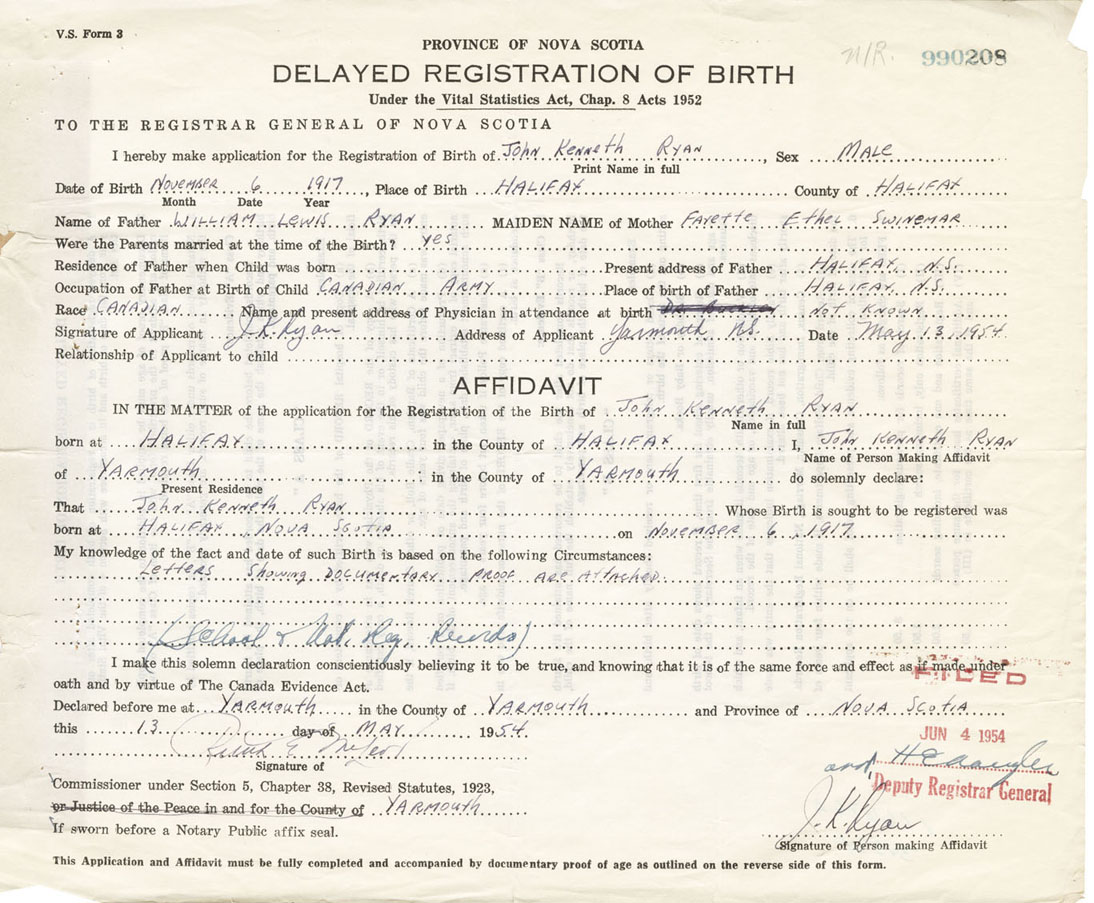 V.S. Form 3
PROVINCE OF NOVA SCOTIA
N/R. 990208
DELAYED REGISTRATION OF BIRTH
Under the Vital Statistics Act, Chap. 8 Acts 1952
TO THE REGISTRAR GENERAL OF NOVA SCOTIA
I hereby make application for the Registration of Birth of John Kenneth Ryan, Sex Male
Print Name in full
Date of Birth November 6 1917, Place of Birth Halifax County of Halifax
Month Date Year
Name of Father William Lewis Ryan MAIDEN NAME of Mother Fayette Ethel Swinemar
Were the Parents married at the time of the Birth? Yes
Residence of Father when Child was born Present address of Father Halifax, N.S.
Occupation of Father at Birth of Child Canadian Army Place of birth of Father Halifax, N.S.
Race Canadian Name and present address of Physician in attendance at birth Not Known
Signature of Applicant J.K. Ryan Address of Applicant Yarmouth N.S. Date May 13, 1954
Relationship of Applicant to child
AFFIDAVIT
IN THE MATTER of the application for the Registration of the Birth of John Kenneth Ryan
Name in full
born at Halifax in the County of Halifax I, John Kenneth Ryan
Name of Person Making Affidavit
of Yarmouth in the County of Yarmouth do solemnly declare:
Present Residence
That John Kenneth Ryan Whose Birth is sought to be registered was
born at Halifax, Nova Scotia on November 6, 1917
My knowledge of the fact and date of such Birth is based on the following Circumstances:
Letters showing documentary proof are attached.
(School & Nat. Reg. Records)
I make this solemn declaration conscientiously believing it to be true, and knowing that it is of the same force and effect as if made under
oath and by virtue of The Canada Evidence Act.
FILED
Declared before me at Yarmouth in the County of Yarmouth and Province of Nova Scotia
this 13 day of May 1954.
JUN 4 1954
Signature of
and
Commissioner under Section 5, Chapter 38, Revised Statutes, 1923,
Deputy Registrar General
or Justice of the Peace in and for the County of Yarmouth
If sworn before a Notary Public affix seal.
J.K. Ryan
Signature of Person making Affidavit
This Application and Affidavit must be fully completed and accompanied by documentary proof of age as outlined on the reverse side of this form.